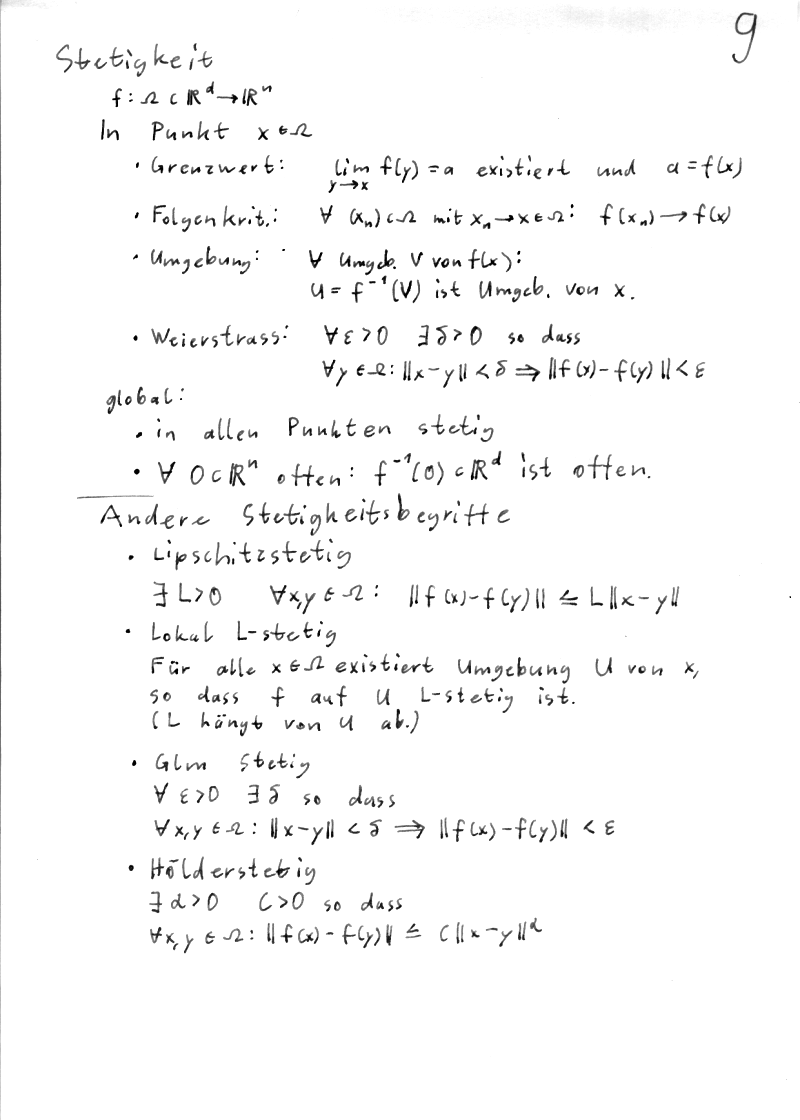 9
Stetigkeit
f: Ω ⊂ ℝᵈ → ℝⁿ
In Punkt x ∈ Ω
• Grenzwert: lim f(y) = a existiert und a = f(x)
y→x
• Folgenkrit.: ∀ (xₙ) ⊂ Ω mit xₙ → x ∈ Ω: f(xₙ) → f(x)
• Umgebung: ∀ Umgeb. V von f(x):
U = f⁻¹(V) ist Umgeb. von x.
• Weierstrass: ∀ε>0 ∃δ>0 so dass
∀y ∈ Ω: ||x-y|| < δ ⇒ ||f(x)-f(y)|| < ε
global:
• in allen Punkten stetig
• ∀ O ⊂ ℝⁿ offen: f⁻¹(O) ⊂ ℝᵈ ist offen.
Andere Stetigkeitsbegriffe
• Lipschitzstetig
∃ L>0 ∀x,y ∈ Ω: ||f(x)-f(y)|| ≤ L||x-y||
• Lokal L-stetig
Für alle x ∈ Ω existiert Umgebung U von x,
so dass f auf U L-stetig ist.
(L hängt von U ab.)
• Glm Stetig
∀ ε>0 ∃δ so dass
∀x,y ∈ Ω: ||x-y|| < δ ⇒ ||f(x)-f(y)|| < ε
• Hölderstetig
∃ α>0 C>0 so dass
∀x,y ∈ Ω: ||f(x)-f(y)|| ≤ C||x-y||^α